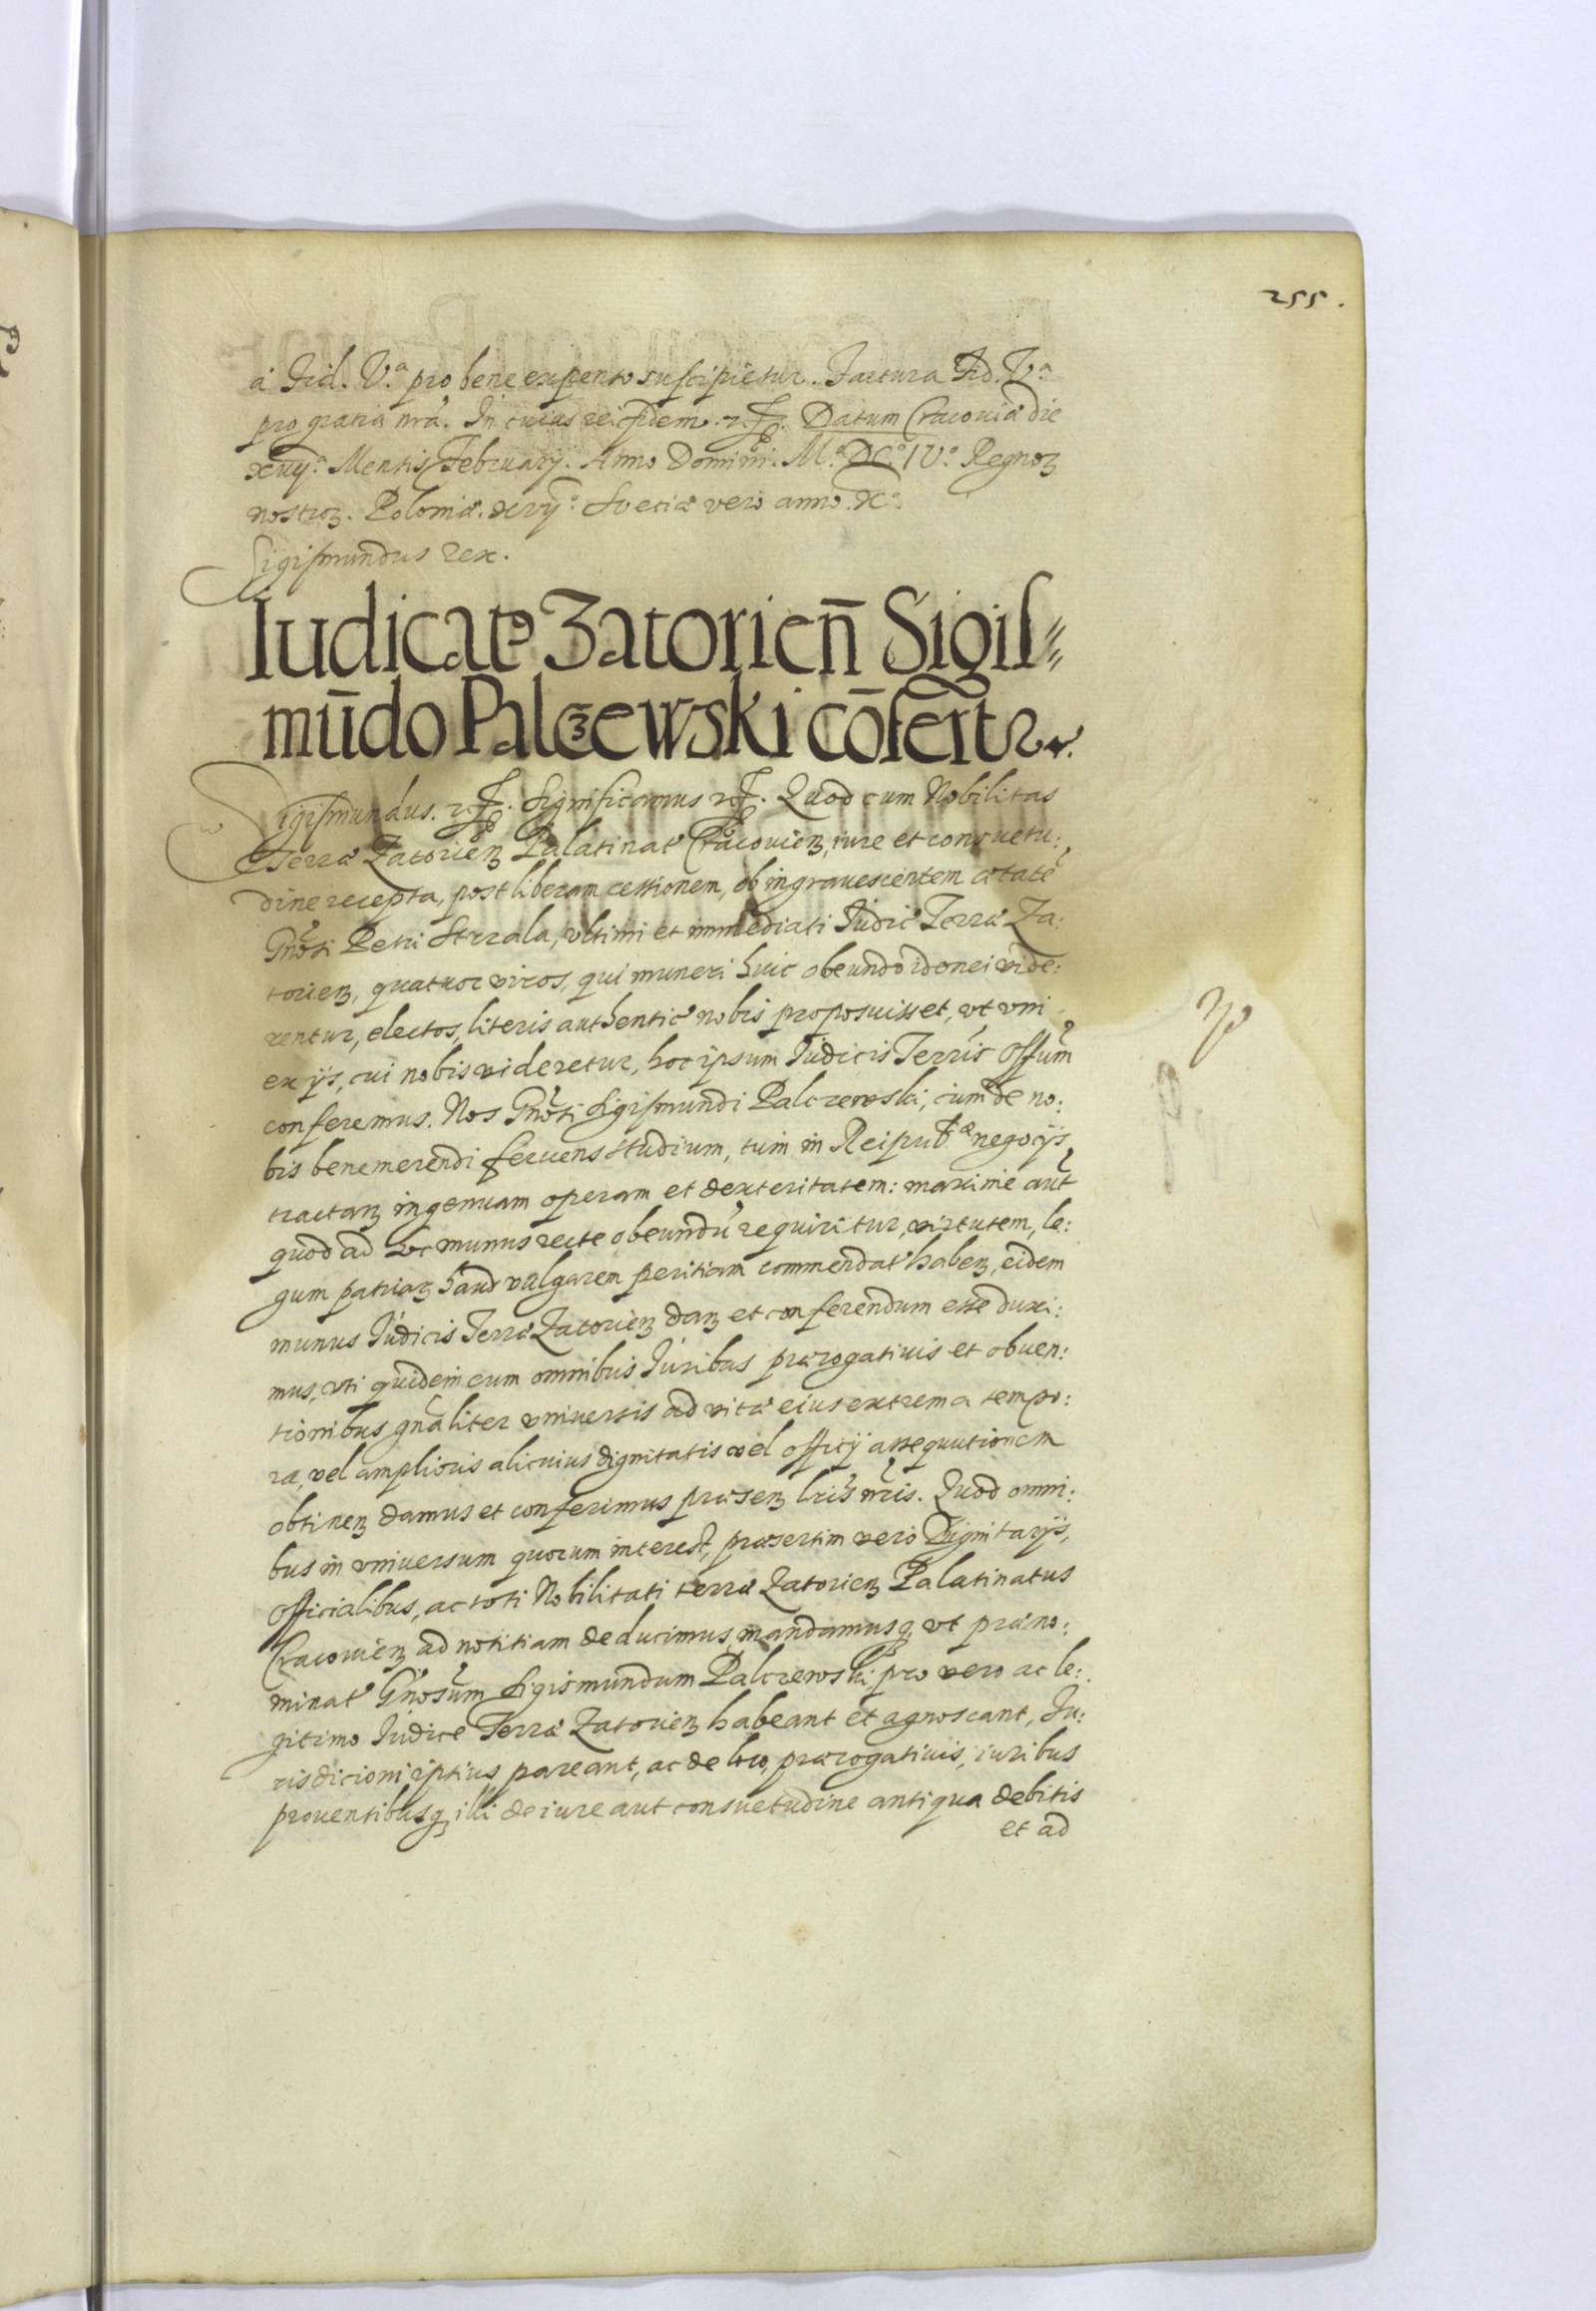 255.
á Fid. V.ª pro bene expento suscipietur. Factura Fid. V.ª
pro gratia nrá. In cuius rei fidem. Datum Cracoviæ die
Mensis February. Anno Domini. M.º DC.º IV.º Regnoꝝ
nostroꝝ. Poloniæ. xvij.º Sveciæ vero anno. X.º
Sigismundus Rex.
Iudicatꝰ Zatorień Sigis⸗
mūdo Palczewski cōfertur.
Sigismundus. Significamus. Quod cum Nobilitas
Terræ Zatorieɳ Palatinatꝰ Cracovieɳ, iure et consvetu:
dine recepta, post liberam cessionem, ob ingravescentem ætatē
Gnōsi Petri Strzala, vltimi et immediati Iudicꝭ Terræ Za:
torieɳ, quatuor viros, qui muneri huic obeundo idonei vide:
rentur, electos, literis authenticꝭ nobis proposuisset, vt vni
ex ijs, cui nobis videretur, hoc ipsum Iudicis Terrīs Offūm
conferemus. Nos Gnōsi Sigismundi Palczewski, cum de no:
bis benemerendi fervens studium, tum in Reipub:æ negocijs
tractaɳ ingenuam operam et dexteritatem: maxime aūt
quod ad hoc munus recte obeundū requiritur, virtutem, le:
gum patriaꝝ haud vulgarem peritiam commendatꝰ habeɳ, eidem
munus Iudicis Terræ Zatorieɳ daɳ et conferendum esse duxi:
mus, vti quidem cum omnibus Iuribus prærogativis et obven:
tionibus gnāliter vniversis ad vitæ eius extrema tempo:
ra, vel amplioris alicuius dignitatis vel officij assequutionem
obtineɳ damus et conferimus præseɳ lrīs nrīs. Quod omni:
bus in vniversum quorum interest, præsertim vero Dignitarijs,
Officialibus, ac toti Nobilitati terræ Zatorieɳ Palatinatus
Cracovieɳ ad notitiam deducimus, mandamusqꝫ vt præno:
minatꝰ Gnōsum Sigismundum Palczewski pro vero ac le:
gitimo Iudice Terræ Zatorieɳ habeant et agnoscant, Iu:
risdicioni ipsius pareant, ac de loco, prærogativis, iuribus
proventibusqꝫ illi de iure aut consvetudine antiqua debitis
et ad